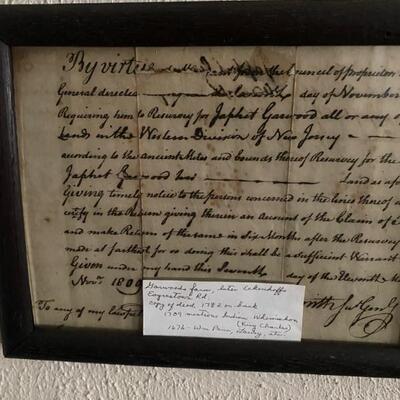 By virtue from the Council of proprietors
General directed day of November
Requiring him to Resurvey for Japhet Garwood all or any of
Lands in the Western Division of New Jersey
according to the Ancient Metes and bounds thereof Resurvey for the
Japhet Garwood his Land as afo
Giving timely notice to the persons concerned in the lines thereof a
certify in the Return giving therein an Amount of the Claim of
and make Return of the same in Six Months after the Resurvey
made at farthest for so doing this shall be a sufficient Warrant
Given under my hand this Seventh day of the Eleventh M
Nov.r 180
To any of my lawful
Garwoods farm, later
Eayrestown Rd.
copy of deed 1782 on back
1709 mentions Indian
(King Charles)
1676 - Wm Penn, Laurey, etc.